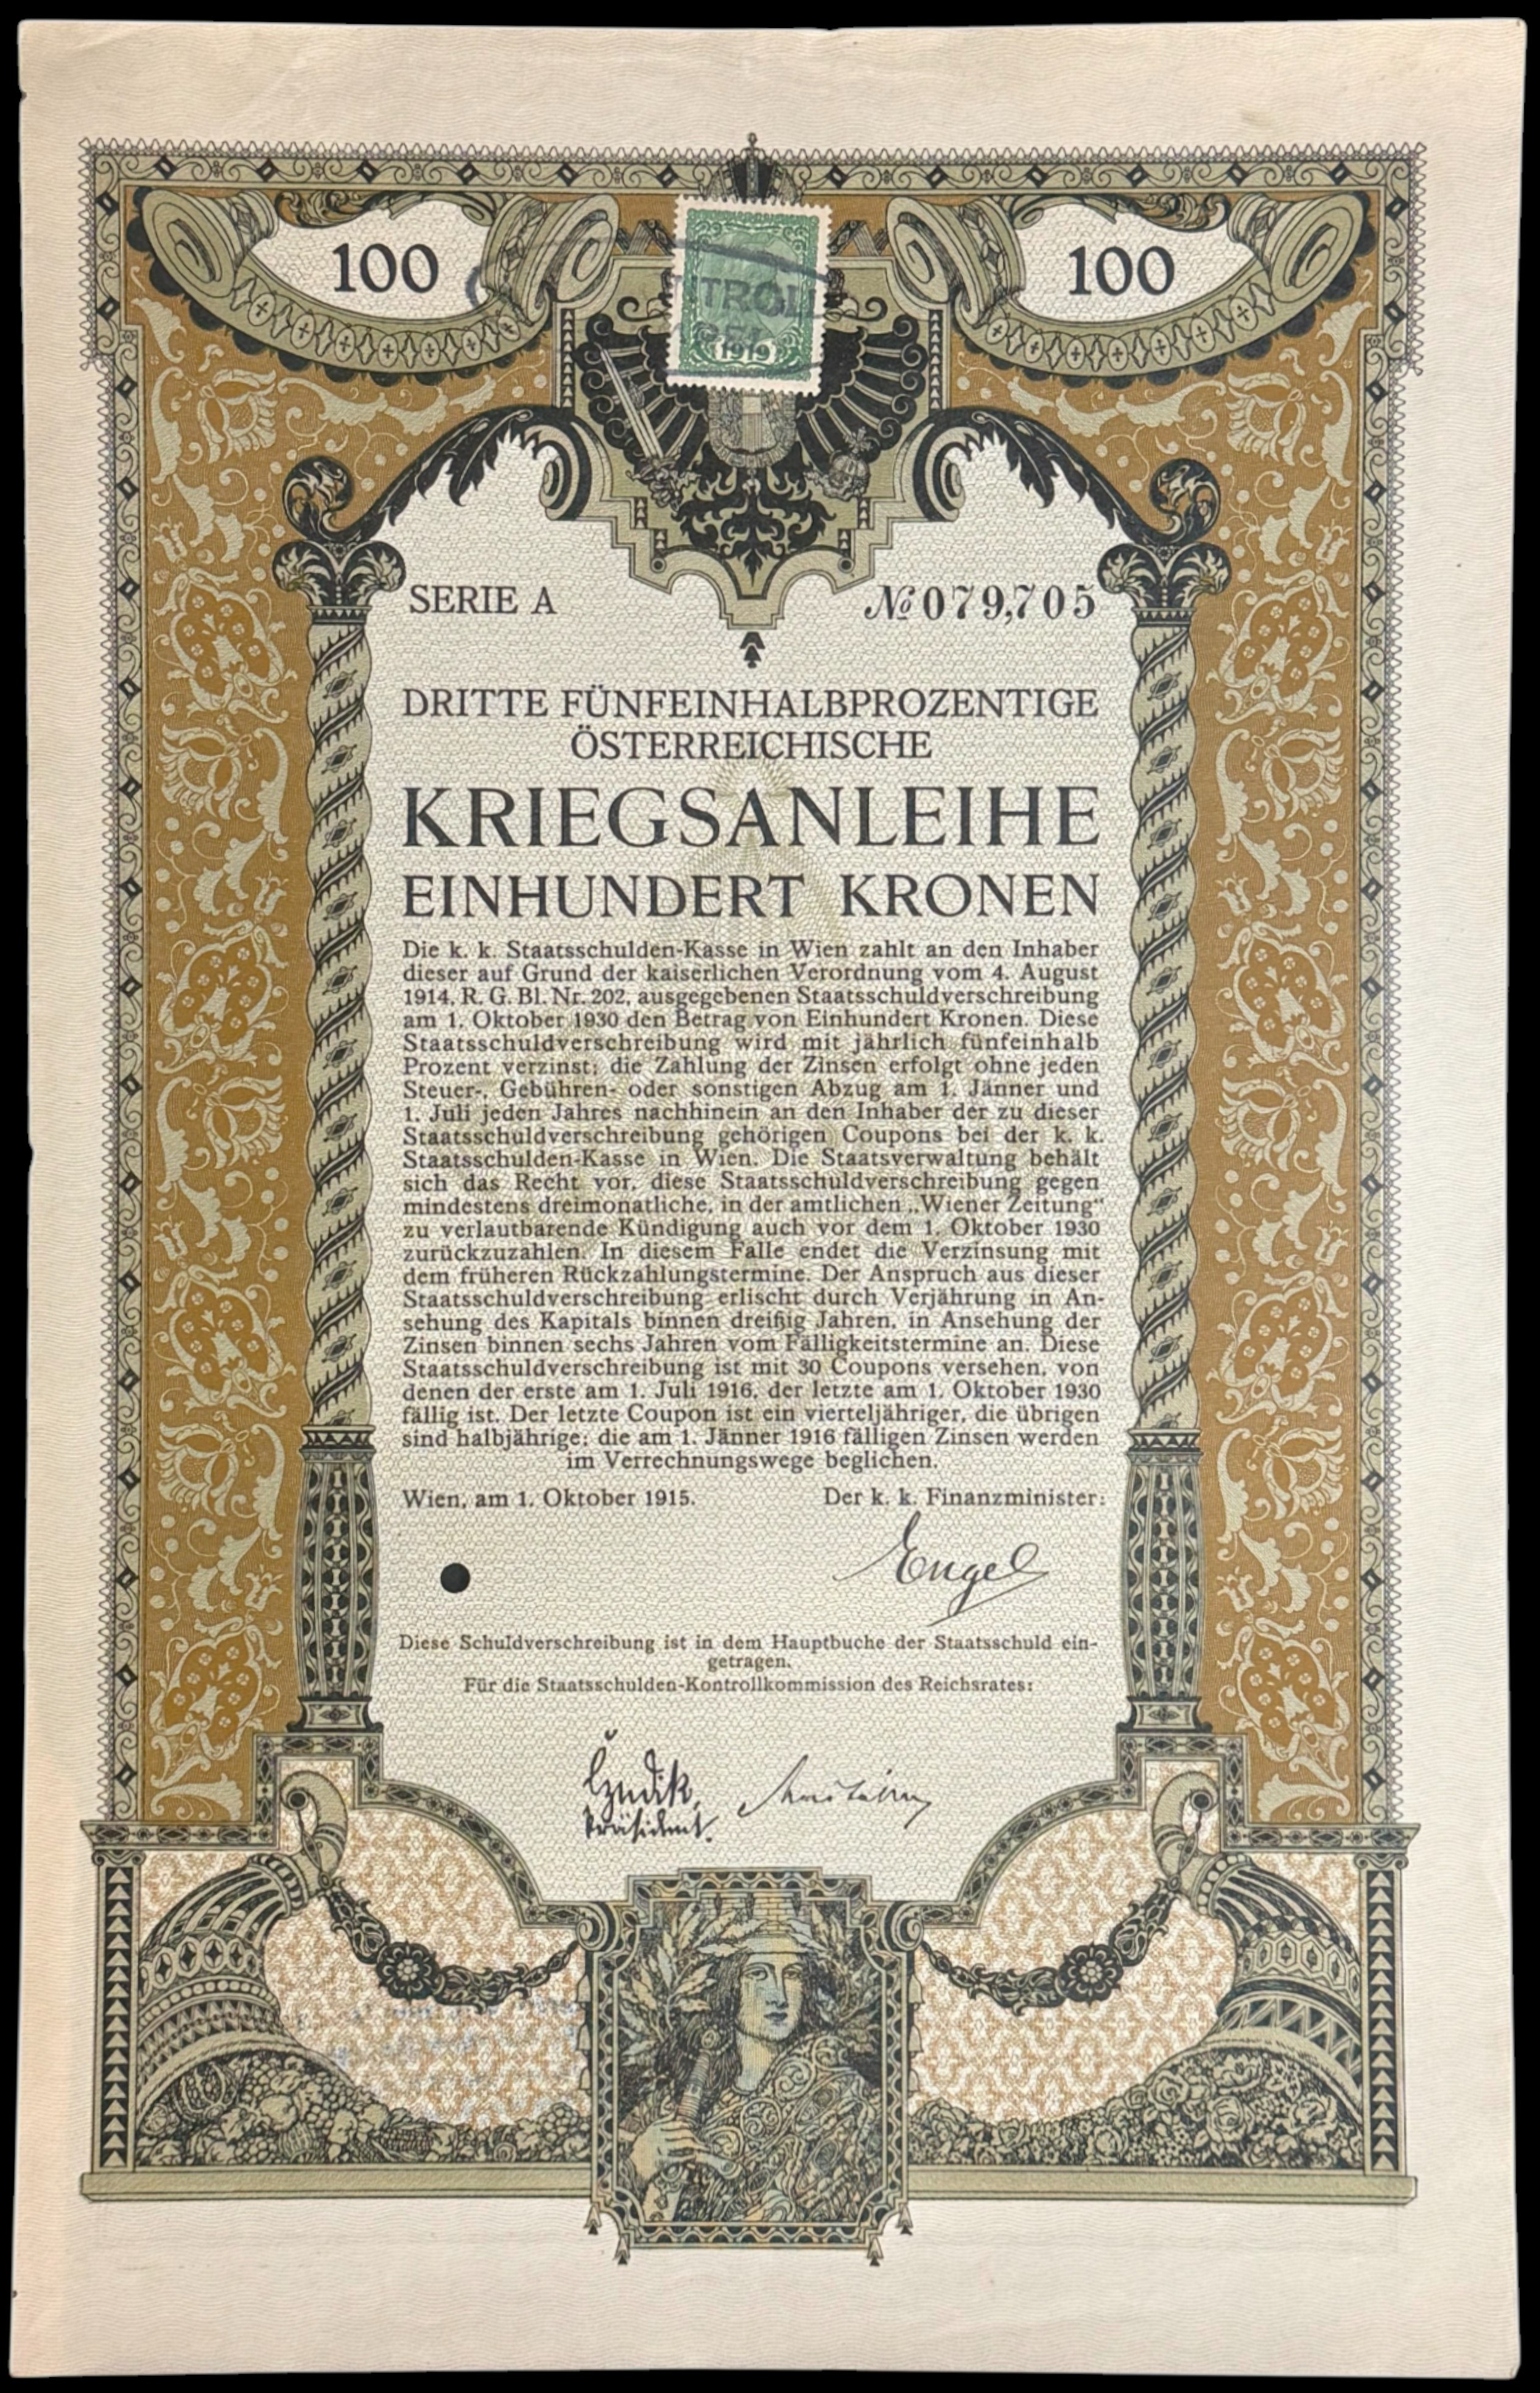 100
100
1919
SERIE A
№ 079,705
DRITTE FÜNFEINHALBPROZENTIGE
ÖSTERREICHISCHE
KRIEGSANLEIHE
EINHUNDERT KRONEN
Die k. k. Staatsschulden-Kasse in Wien zahlt an den Inhaber
dieser auf Grund der kaiserlichen Verordnung vom 4. August
1914, R. G. Bl. Nr. 202, ausgegebenen Staatsschuldverschreibung
am 1. Oktober 1930 den Betrag von Einhundert Kronen. Diese
Staatsschuldverschreibung wird mit jährlich fünfeinhalb
Prozent verzinst; die Zahlung der Zinsen erfolgt ohne jeden
Steuer-, Gebühren- oder sonstigen Abzug am 1. Jänner und
1. Juli jeden Jahres nachhinein an den Inhaber der zu dieser
Staatsschuldverschreibung gehörigen Coupons bei der k. k.
Staatsschulden-Kasse in Wien. Die Staatsverwaltung behält
sich das Recht vor, diese Staatsschuldverschreibung gegen
mindestens dreimonatliche, in der amtlichen „Wiener Zeitung“
zu verlautbarende Kündigung auch vor dem 1. Oktober 1930
zurückzuzahlen. In diesem Falle endet die Verzinsung mit
dem früheren Rückzahlungstermine. Der Anspruch aus dieser
Staatsschuldverschreibung erlischt durch Verjährung in An-
sehung des Kapitals binnen dreißig Jahren, in Ansehung der
Zinsen binnen sechs Jahren vom Fälligkeitstermine an. Diese
Staatsschuldverschreibung ist mit 30 Coupons versehen, von
denen der erste am 1. Juli 1916, der letzte am 1. Oktober 1930
fällig ist. Der letzte Coupon ist ein vierteljähriger, die übrigen
sind halbjährige; die am 1. Jänner 1916 fälligen Zinsen werden
im Verrechnungswege beglichen.
Wien, am 1. Oktober 1915.
Der k. k. Finanzminister:
Engel
Diese Schuldverschreibung ist in dem Hauptbuche der Staatsschuld ein-
getragen.
Für die Staatsschulden-Kontrollkommission des Reichsrates:
Präsident.